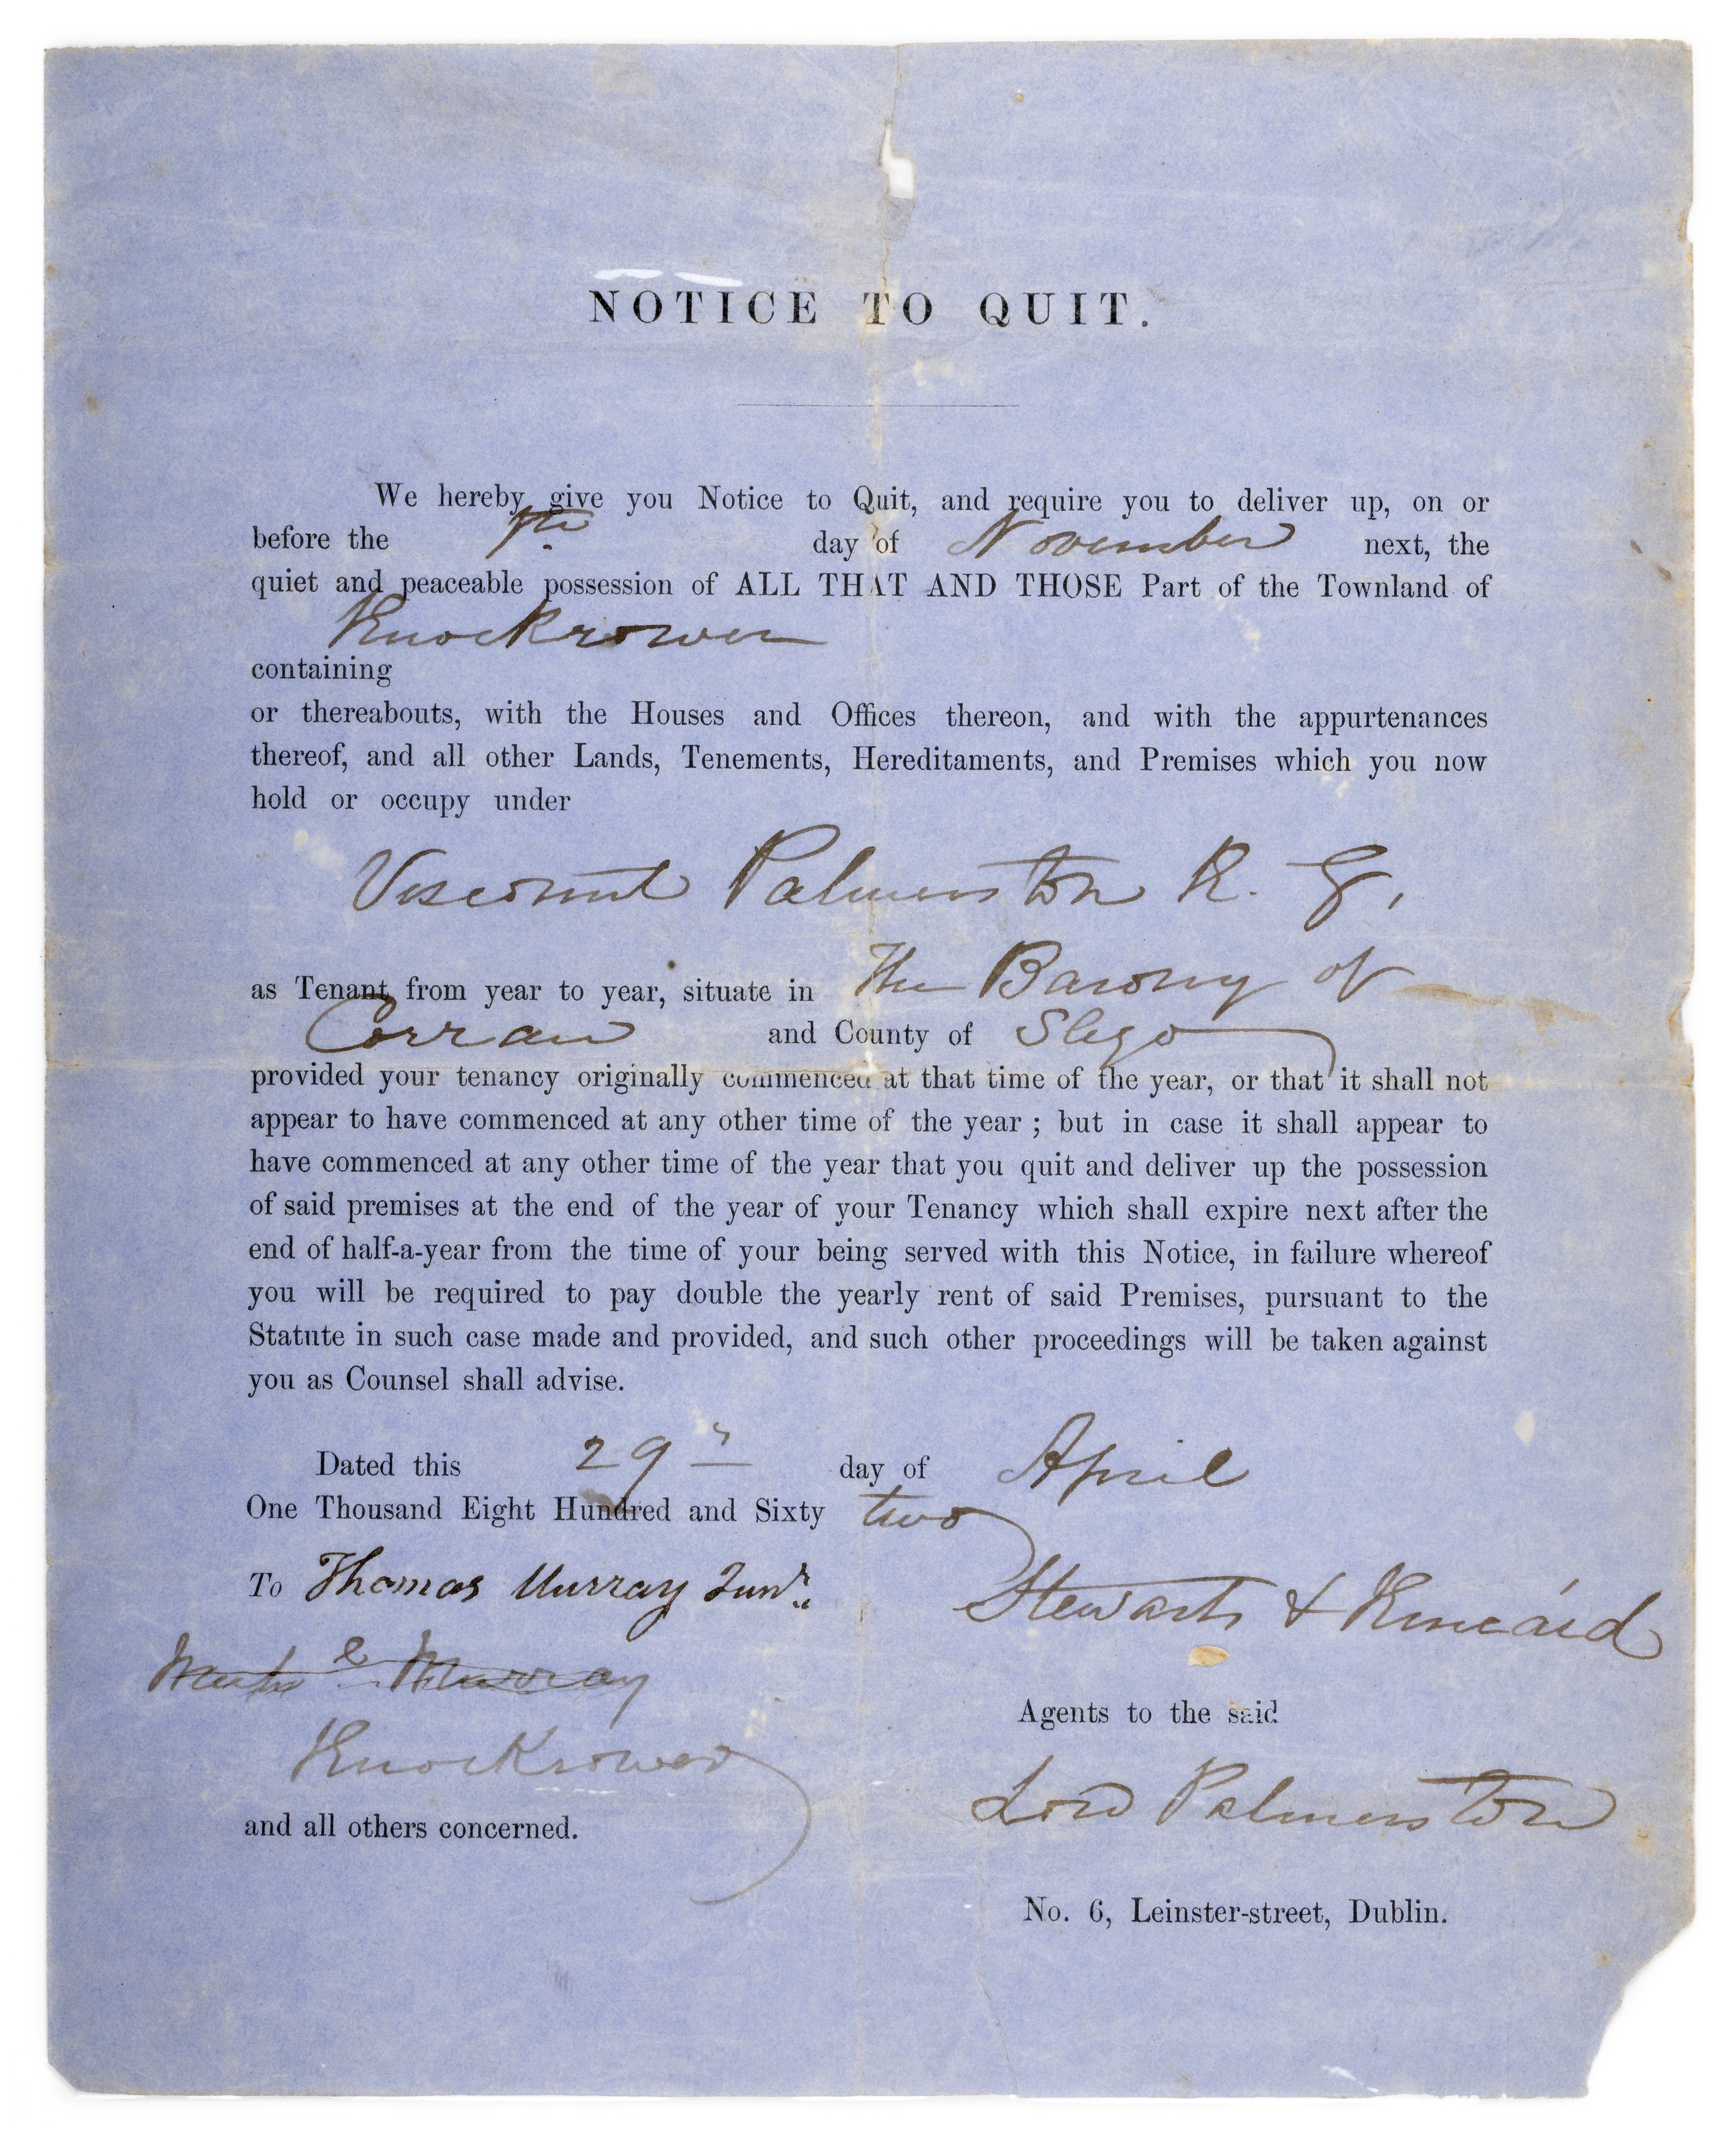 NOTICE TO QUIT.
We hereby give you Notice to Quit, and require you to deliver up, on or
before the day of November next, the
quiet and peaceable possession of ALL THAT AND THOSE Part of the Townland of
Knockrower
containing
or thereabouts, with the Houses and Offices thereon, and with the appurtenances
thereof, and all other Lands, Tenements, Hereditaments, and Premises which you now
hold or occupy under
Viscount Palmerston K. G,
as Tenant from year to year, situate in The Barony of
Corran and County of Sligo
provided your tenancy originally commenced at that time of the year, or that it shall not
appear to have commenced at any other time of the year ; but in case it shall appear to
have commenced at any other time of the year that you quit and deliver up the possession
of said premises at the end of the year of your Tenancy which shall expire next after the
end of half-a-year from the time of your being served with this Notice, in failure whereof
you will be required to pay double the yearly rent of said Premises, pursuant to the
Statute in such case made and provided, and such other proceedings will be taken against
you as Counsel shall advise.
Dated this 29 day of April
One Thousand Eight Hundred and Sixty two
To Thomas Murray Junr.
Stewarts & Kincaid
Murray
Agents to the said
Knockrower
Lord Palmerston
and all others concerned.
No. 6, Leinster-street, Dublin.